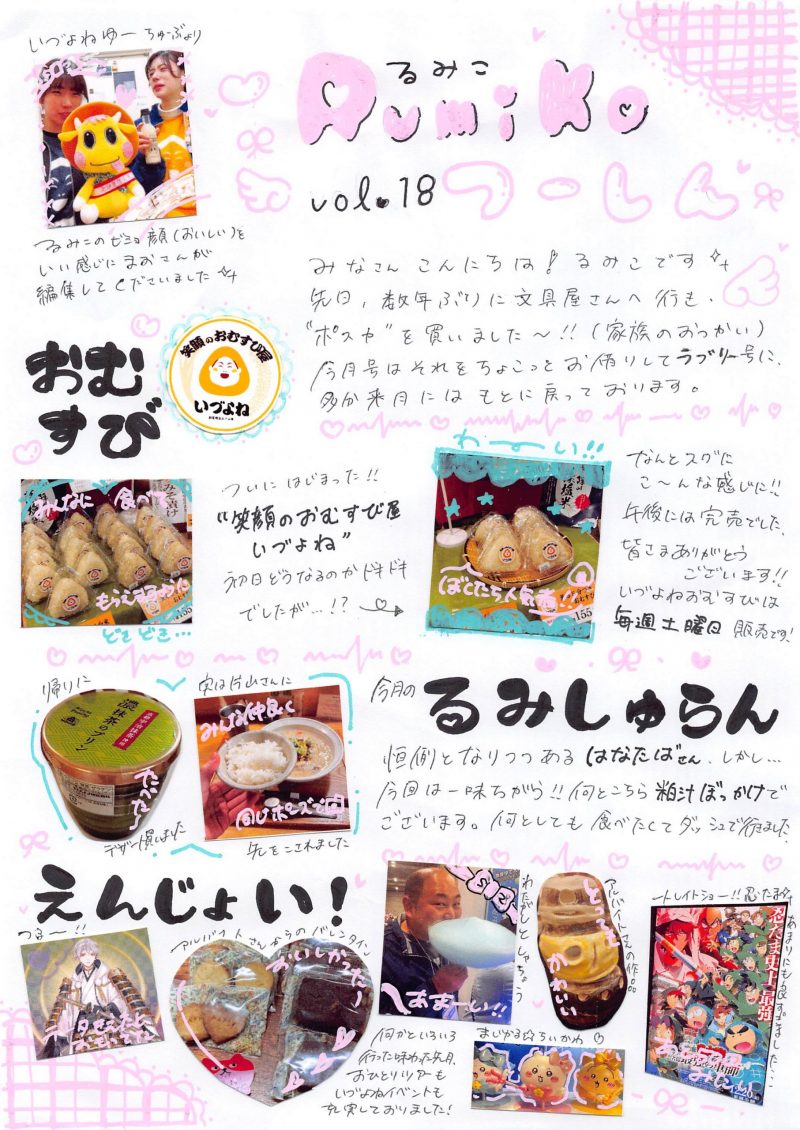 いづよねゆーちゅーぶより
るみこ
Rumiko
vol.18 つーしん
るみこのゼミョ顔(おいしい)を
いい感じに まおさんが
編集してくださいました
みなさん こんにちは! るみこです
先日、数年ぶりに文具屋さんへ行き、
"ポスカ"を買いました〜!!(家族のおつかい)
今月号はそれをちょこっとお借りしてラブリー号に、
多分来月にはもとに戻っております。
おむ
すび
笑顔のおむすび屋
いづよね
みんなに 食べて
もらえますように
¥155
どきどき…
ついにはじまった!!
"笑顔のおむすび屋
いづよね"
初日どうなるのかドキドキ
でしたが…!?
わーい!!
ぼくたち人気者!!
155
なんとスグに
こ〜んな感じに!!
午後には完売でした。
皆さまありがとう
ございます!!
いづよねおむすびは
毎週土曜日 販売です!
帰りに
濃抹茶のプリン
たべた!
デザート頂きました
実は片山さんに
みんな仲良く
同じポーズで
先をこされました
今月の るみしゅらん
恒例となりつつある はなたばさん、しかし…
今回は一味ちがう!! 何とこちら 粕汁ぶっかけで
ございます。何としても食べたくてダッシュで行きました
えんじょい!
つる〜!!
アルバイトさんからのバレンタイン
おいしかった〜
何かといろいろ
行った味わった先月。
おひとりツアーも
いづよねイベントも
充実しておりました!
わたがしとしゃちょう
あまーい!!
アルバイトさんの作品
とっても
かわいい
まじかる☆ちいかわ
トレイトショー!! 忍たま
あまりにも良すぎました…
忍たま史上、最強